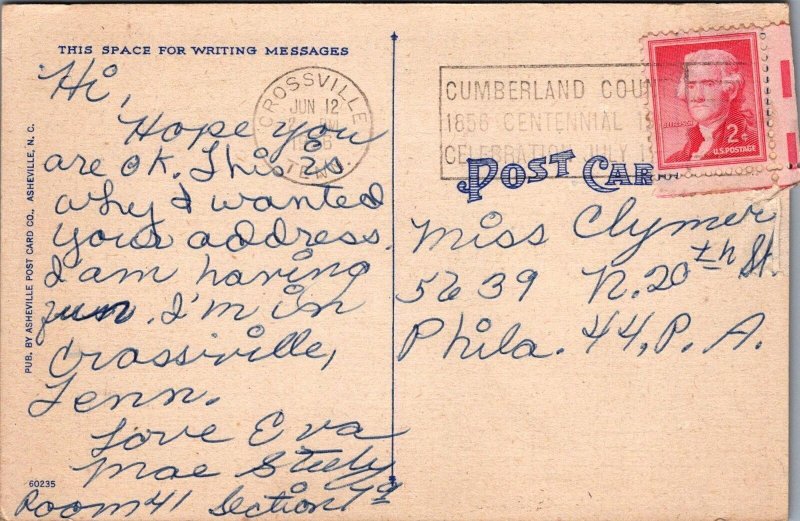 THIS SPACE FOR WRITING MESSAGES
Hi,
Hope you
are OK. This is
why I wanted
your address.
I am having
fun. I'm in
Crossville,
Tenn.
Love Eva
Mae Steely
Room 41 Section
PUB. BY ASHEVILLE POST CARD CO., ASHEVILLE, N. C.
60235
CROSSVILLE
JUN 12
TENN.
CUMBERLAND COUN
1856 CENTENNIAL 1
CELEBRATION JULY 1
2¢
U.S. POSTAGE
POST CAR
Miss Clymer
5639 N. 20th St.
Phila. 44, P. A.